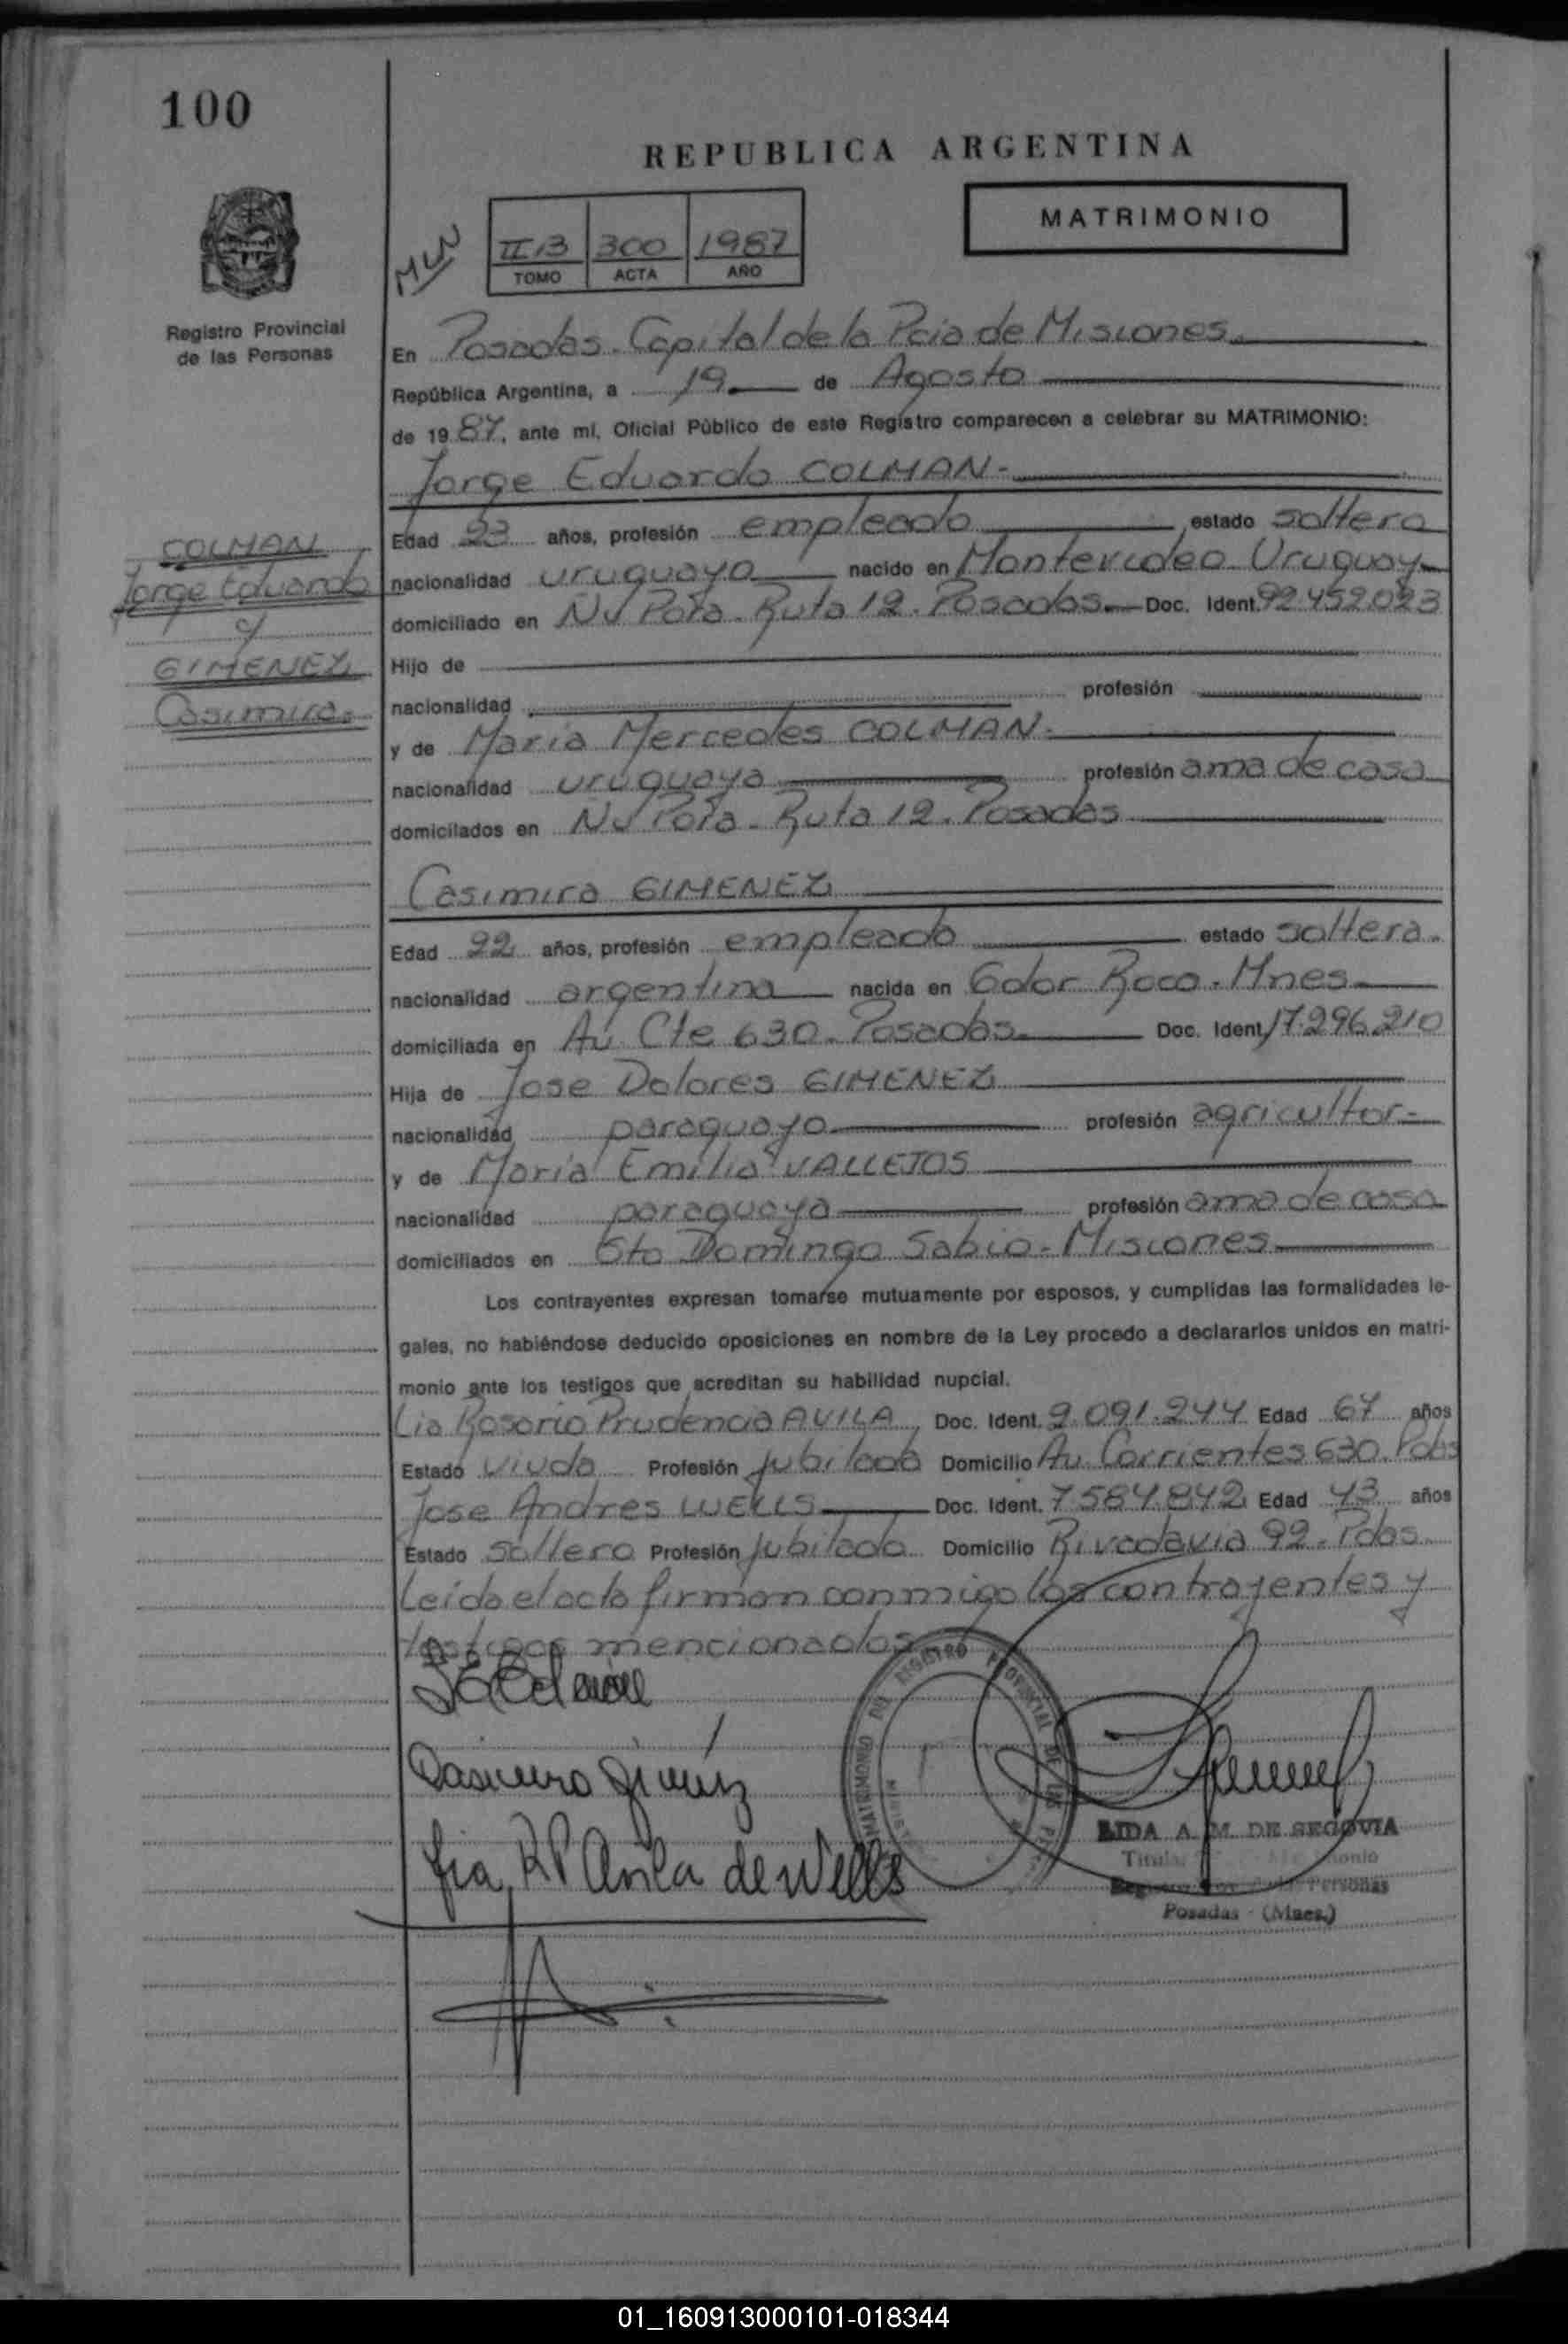 100
REPUBLICA ARGENTINA
MATRIMONIO
MUN
II B 300 1987
TOMO ACTA AÑO
Registro Provincial
de las Personas
En Posadas. Capital de la Pcia de Misiones.
República Argentina, a 19 de Agosto
de 1987, ante mí, Oficial Público de este Registro comparecen a celebrar su MATRIMONIO:
Jorge Eduardo COLMAN.
COLMAN
Jorge Eduardo
y
GIMENEZ
Casimira.
Edad 23 años, profesión empleado estado soltero
nacionalidad uruguaya nacido en Montevideo Uruguay
domiciliado en Ruta 12. Posadas. Doc. Ident. 92.452.023
Hijo de
nacionalidad profesión
y de Maria Mercedes COLMAN.
nacionalidad uruguaya profesión ama de casa
domiciliados en Ruta 12. Posadas
Casimira GIMENEZ
Edad 22 años, profesión empleada estado soltera.
nacionalidad argentina nacida en Gdor Roca. Mnes.
domiciliada en Av. Cte 630. Posadas. Doc. Ident. 17.296.210
Hija de Jose Dolores GIMENEZ
nacionalidad paraguayo profesión agricultor.
y de Maria Emilia VALLEJOS
nacionalidad paraguaya profesión ama de casa
domiciliados en Sto Domingo Sabio. Misiones
Los contrayentes expresan tomarse mutuamente por esposos, y cumplidas las formalidades le-
gales, no habiéndose deducido oposiciones en nombre de la Ley procedo a declararlos unidos en matri-
monio ante los testigos que acreditan su habilidad nupcial.
Lia Rosario Prudencia AVILA Doc. Ident. 2.091.244 Edad 67 años
Estado viuda Profesión jubilada Domicilio Av. Corrientes 630. Pdas
Jose Andres WELLS Doc. Ident. 7584.842 Edad 43 años
Estado soltero Profesión jubilado Domicilio Rivadavia 92. Pdas.
Leida el acta firman conmigo los contrayentes y
testigos mencionados
J E Colman
Casimira Gimenez
Lia R P Avila de Wells
MATRIMONIO DEL REGISTRO PROVINCIAL DE LAS
LIDA A. M. DE SEGOVIA
Posadas - (Mnes.)
01_160913000101-018344